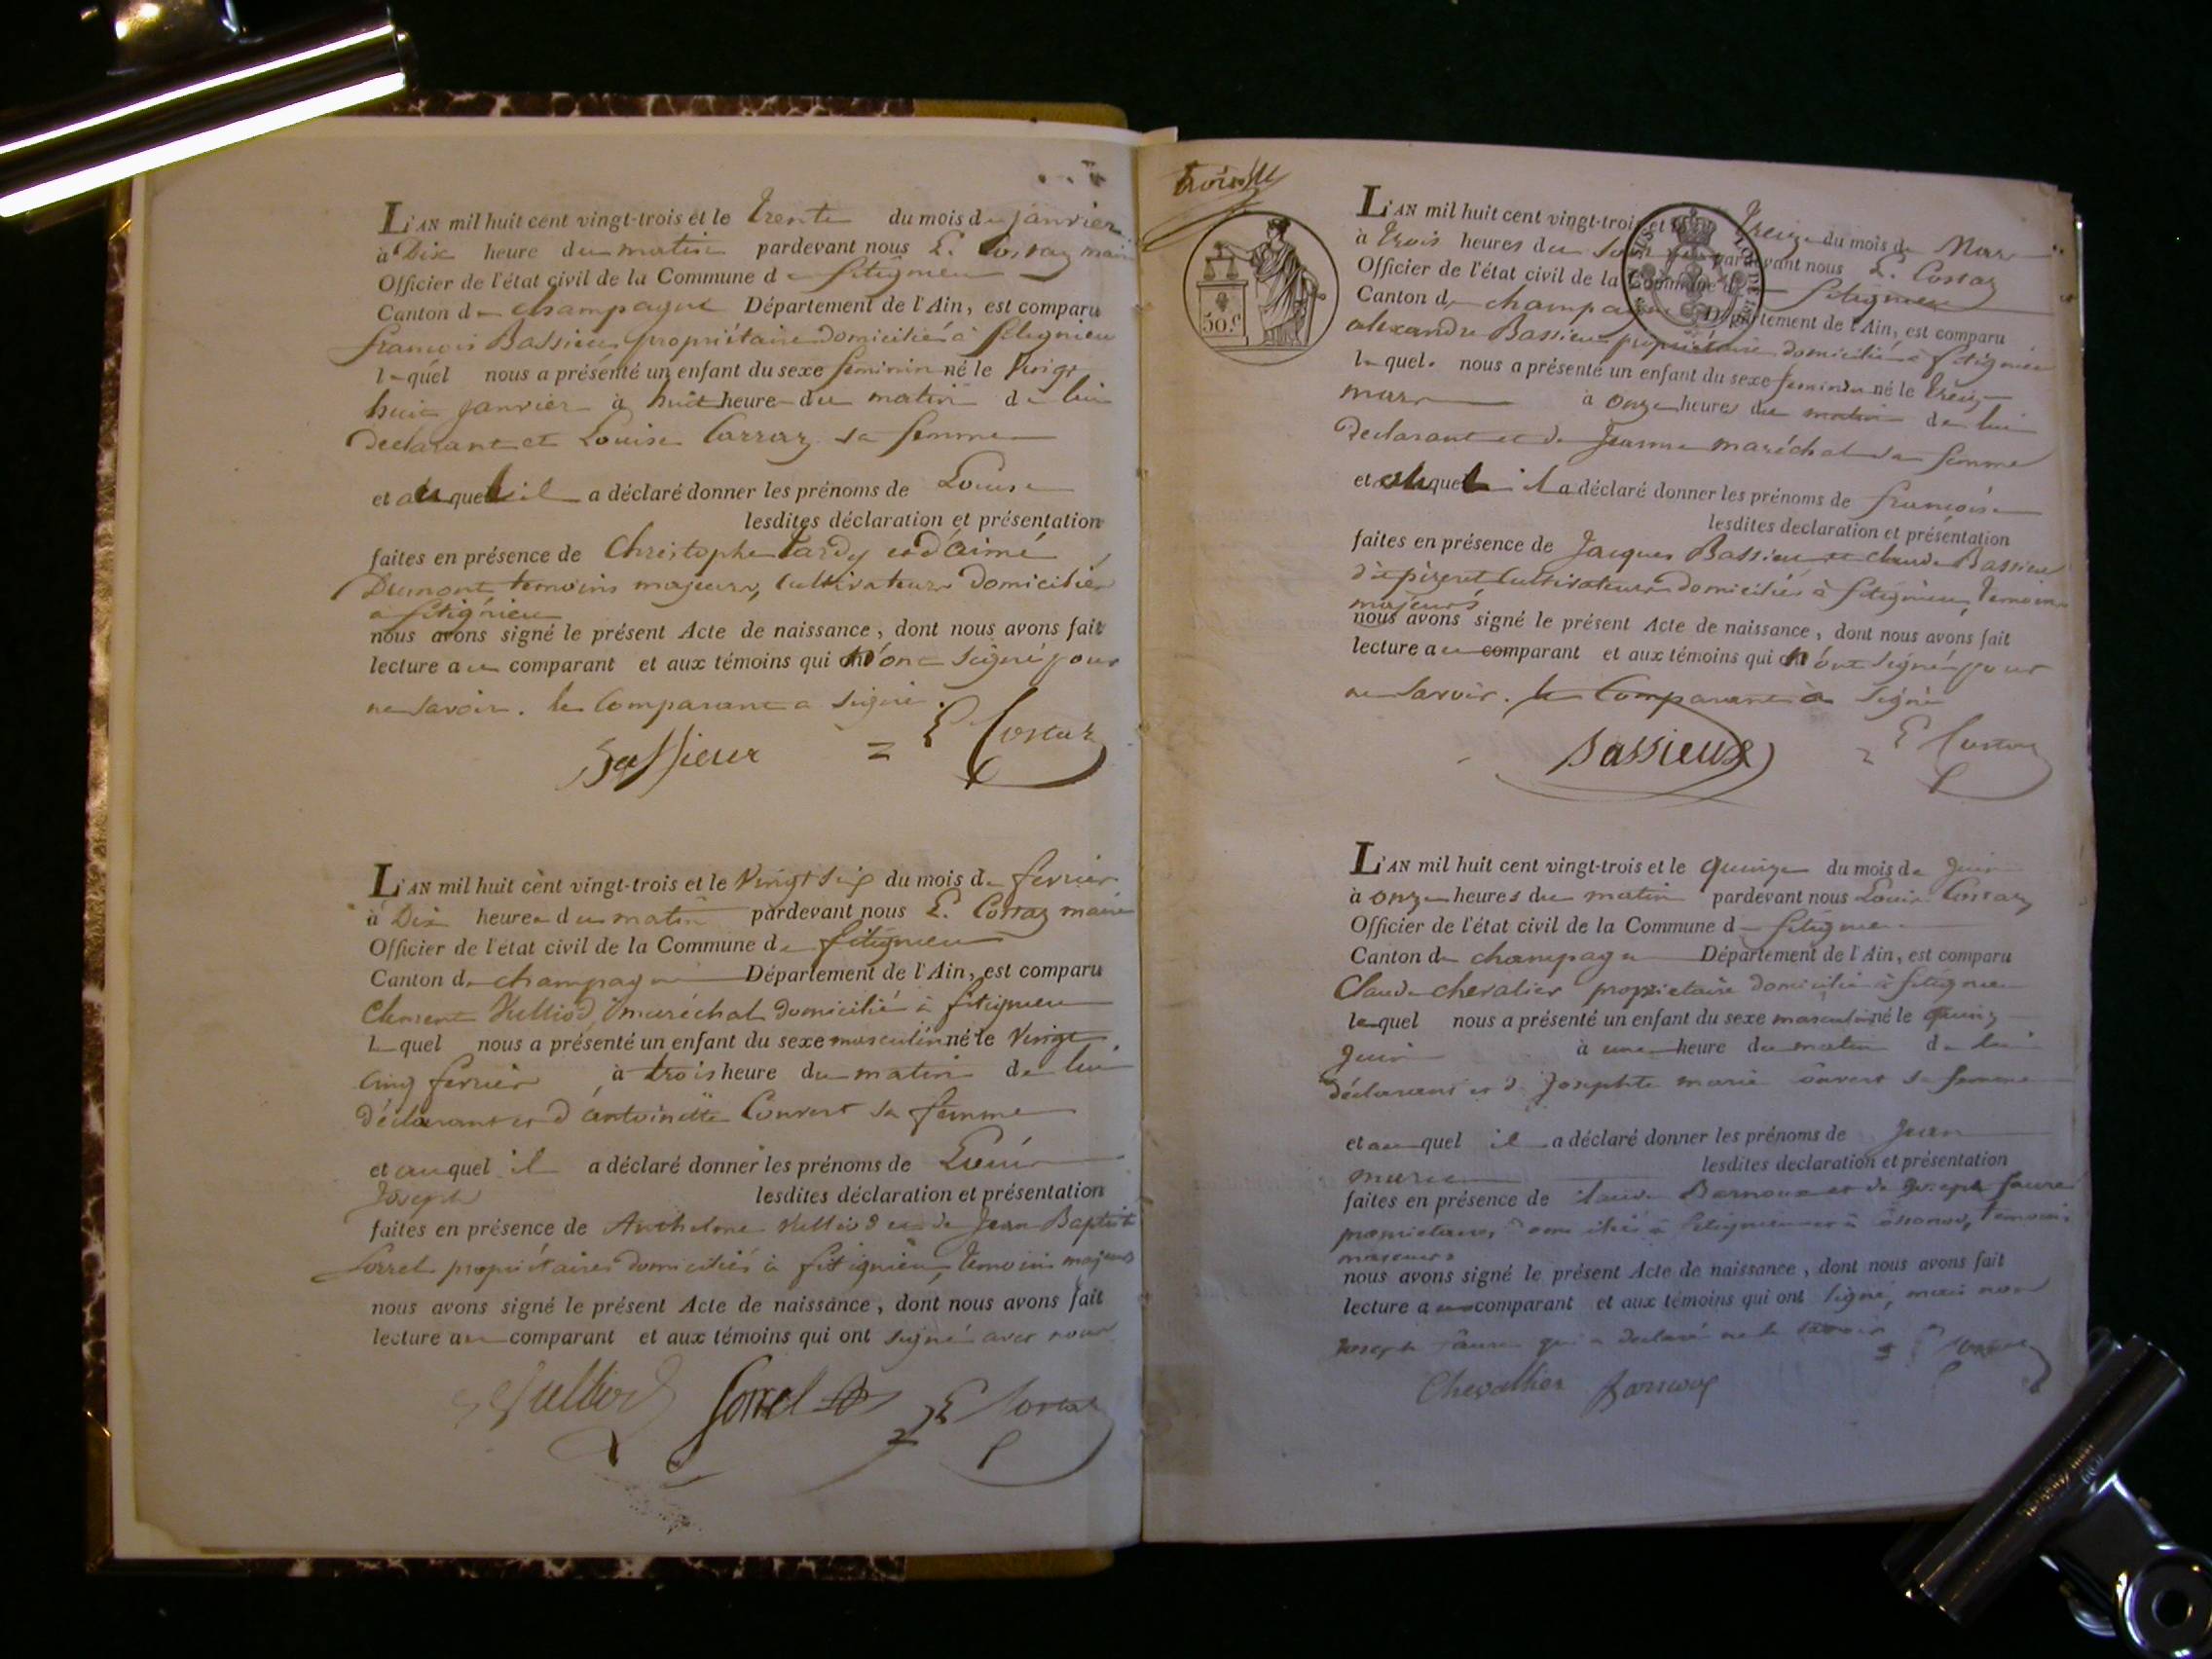 L'AN mil huit cent vingt-trois et le trente du mois de janvier
à Dix heure du matin pardevant nous L. Costaz maire
Officier de l'état civil de la Commune de fitignieu
Canton de champagne Département de l'Ain, est comparu
françois Bassieu propriétaire domicilié à fitignieu
lequel nous a présenté un enfant du sexe feminin né le Vingt
huit janvier à huit heure du matin de lui
déclarant et Louise Carraz sa femme
et auquel il a déclaré donner les prénoms de Louise
lesdites déclaration et présentation
faites en présence de Christophe tardy et d'aimé
Dumont temoins majeurs, Cultivateurs domiciliés
a fitignieu
nous avons signé le présent Acte de naissance, dont nous avons fait
lecture au comparant et aux témoins qui n'ont signé pour
ne savoir. le Comparant a signé.
Bassieux L Costaz
L'AN mil huit cent vingt-trois et le Vingt six du mois de fevrier
à Dix heure du matin pardevant nous L. Costaz maire
Officier de l'état civil de la Commune de fitignieu
Canton de champagne Département de l'Ain, est comparu
Clement Julliod, maréchal domicilié à fitignieu
lequel nous a présenté un enfant du sexe masculin né le Vingt
Cinq fevrier à trois heure du matin de lui
déclarant et d'antoinette Convert sa femme
et auquel il a déclaré donner les prénoms de Louis
Joseph lesdites déclaration et présentation
faites en présence de Anthelme Julliod et de Jean Baptiste
Sorrel propriétaires domiciliés à fitignieu, temoins majeurs
nous avons signé le présent Acte de naissance, dont nous avons fait
lecture au comparant et aux témoins qui ont signé avec nous
Julliod Sorrel L Costaz
troisième
50.C
L'AN mil huit cent vingt-trois et le treize du mois de Mars
à trois heures du soir pardevant nous L. Costaz
Officier de l'état civil de la Commune de fitignieu
Canton de champagne Département de l'Ain, est comparu
alexandre Bassieu propriétaire domicilié à fitignieu
lequel nous a présenté un enfant du sexe feminin né le treize
mars à onze heures du matin de lui
déclarant et de Jeanne maréchal sa femme
et auquel il a déclaré donner les prénoms de françoise
lesdites declaration et présentation
faites en présence de Jacques Bassieu et claude Bassieu
dit Cultivateurs domiciliés à fitignieu, temoins
majeurs
nous avons signé le présent Acte de naissance, dont nous avons fait
lecture au comparant et aux témoins qui n'ont signé pour
ne savoir. le Comparant a signé
Bassieux L Costaz
L'AN mil huit cent vingt-trois et le quinze du mois de Juin
à onze heures du matin pardevant nous Louis Costaz
Officier de l'état civil de la Commune de fitignieu
Canton de champagne Département de l'Ain, est comparu
Claude chevalier propriétaire domicilié à fitignieu
lequel nous a présenté un enfant du sexe masculin né le quinze
Juin à une heure du matin de lui
déclarant et de Josephte marie Convert sa femme
et auquel il a déclaré donner les prénoms de Jean
marie lesdites declaration et présentation
faites en présence de claude Bornoux et de Joseph faure
propriétaires, domiciliés à fitignieu et à temoins
majeurs
nous avons signé le présent Acte de naissance, dont nous avons fait
lecture au comparant et aux témoins qui ont signé, mais non
Joseph faure qui a déclaré ne le savoir L Costaz
Chevallier